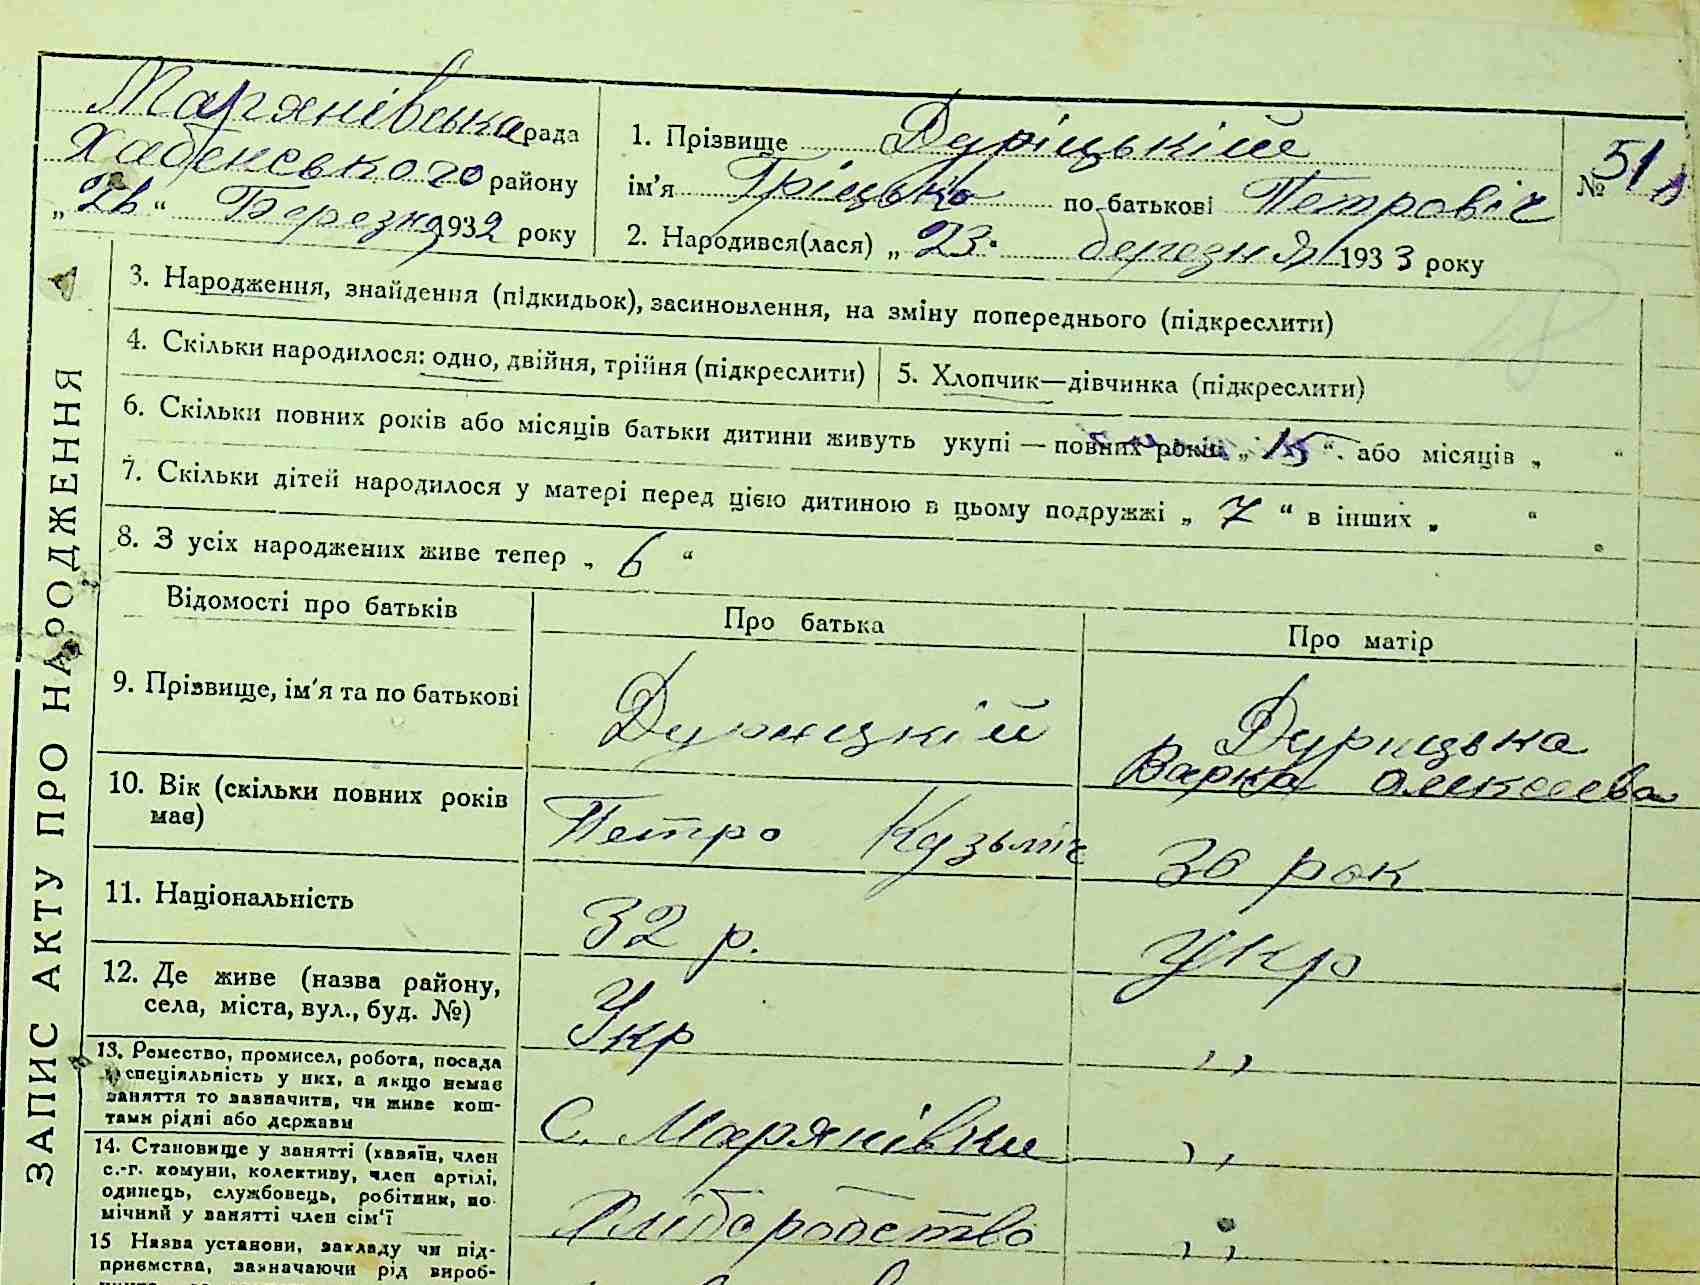 Мар'янівська рада
Хабенського району
„ 26 “ Березня 1932 року
1. Прізвище Дуріцькій
ім'я Гріцько по батькові Петровіч
№ 51
2. Народився(лася) „ 23 “ березня 1933 року
ЗАПИС АКТУ ПРО НАРОДЖЕННЯ
3. Народження, знайдення (підкидьок), засиновлення, на зміну попереднього (підкреслити)
4. Скільки народилося: одно, двійня, трійня (підкреслити)
5. Хлопчик—дівчинка (підкреслити)
6. Скільки повних років або місяців батьки дитини живуть укупі — повних років „ 15 “ або місяців „ “
7. Скільки дітей народилося у матері перед цією дитиною в цьому подружжі „ 7 “ в інших „ “
8. З усіх народжених живе тепер „ 6 “
Відомості про батьків
Про батька
Про матір
9. Прізвище, ім'я та по батькові
Дурицкій
Дуріцька
Варка Алексеева
10. Вік (скільки повних років
має)
Петро Кузьміч
30 рок
11. Національність
32 р.
Укр
12. Де живе (назва району,
села, міста, вул., буд. №)
Укр
,,
13. Ремество, промисел, робота, посада
й спеціяльність у них, а якщо немає
заняття то зазначити, чи живе кош-
тами рідні або держави
С. Мар'янівки
,,
14. Становище у занятті (хазяїн, член
с.-г. комуни, колективу, член артілі,
одинець, службовець, робітник, по-
мічний у занятті член сім'ї
Хліборобство
,,
15 Назва установи, закладу чи під-
приємства, зазначаючи рід вироб-